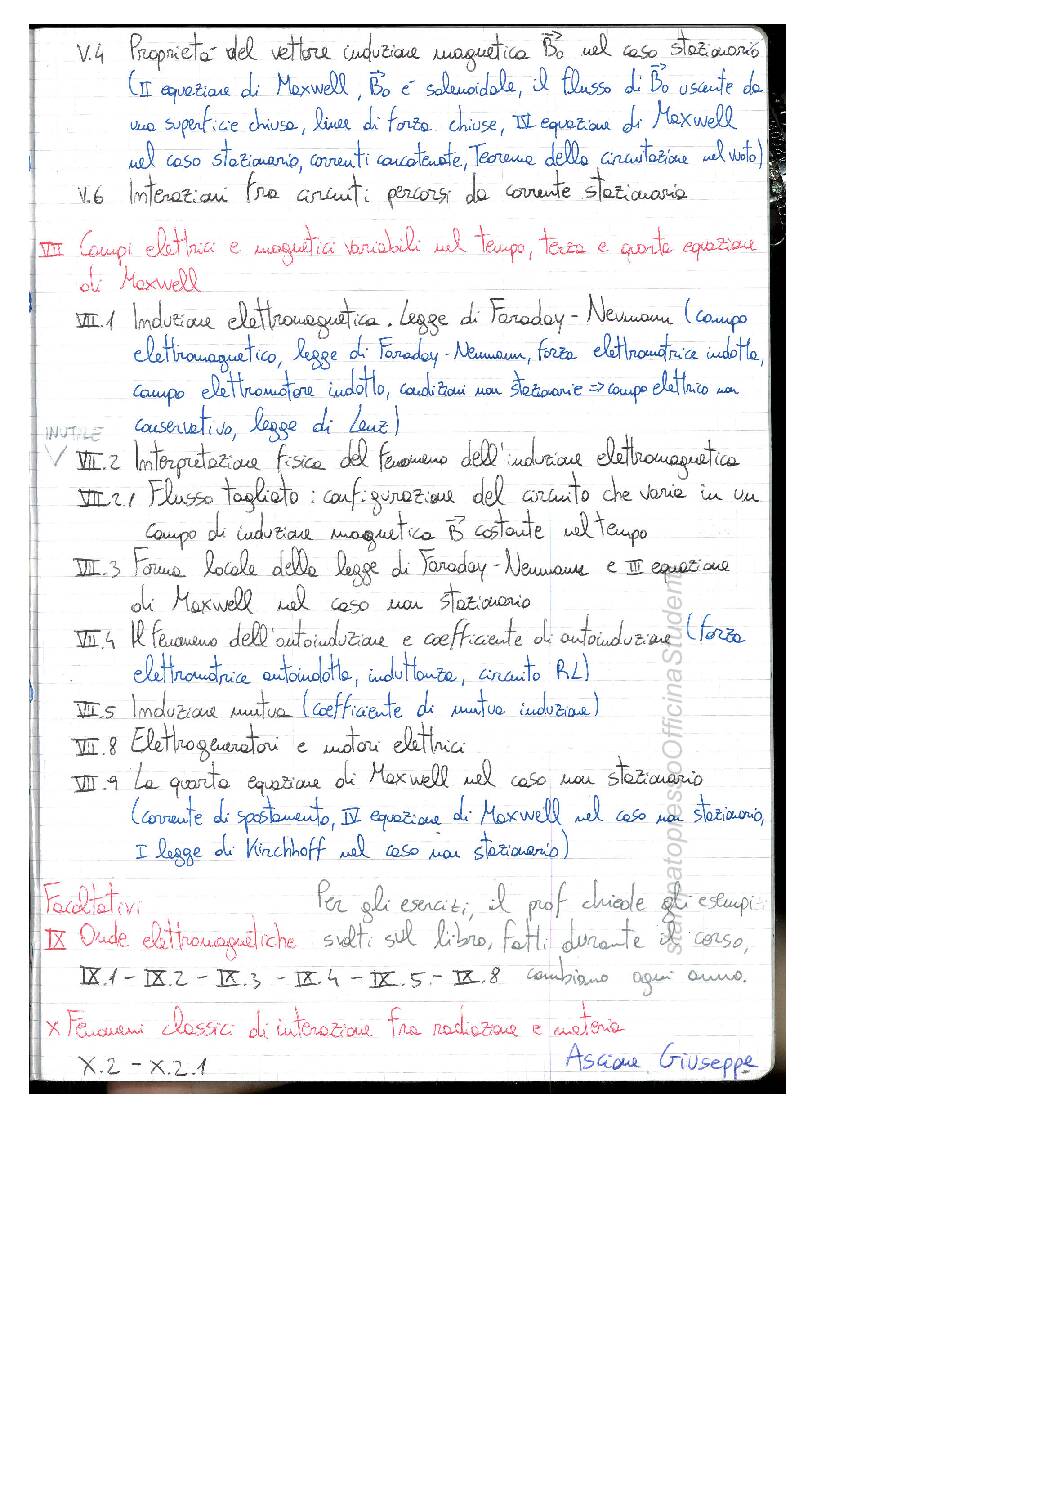 V.4 Proprietà del vettore induzione magnetica B⃗₀ nel caso stazionario
(II equazione di Maxwell, B⃗₀ è solenoidale, il flusso di B⃗₀ uscente da
una superficie chiusa, linee di forza chiuse, IV equazione di Maxwell
nel caso stazionario, correnti concatenate, Teorema della circuitazione nel vuoto)
V.6 Interazioni fra circuiti percorsi da corrente stazionaria
VII Campi elettrici e magnetici variabili nel tempo, terza e quarta equazione
di Maxwell
VII.1 Induzione elettromagnetica. Legge di Faraday-Neumann (campo
elettromagnetico, legge di Faraday-Neumann, forza elettromotrice indotta,
campo elettromotore indotto, condizioni non stazionarie => campo elettrico non
conservativo, legge di Lenz)
INUTILE
VII.2 Interpretazione fisica del fenomeno dell'induzione elettromagnetica
VII.2.1 Flusso tagliato: configurazione del circuito che varia in un
campo di induzione magnetica B⃗ costante nel tempo
VII.3 Forma locale della legge di Faraday-Neumann e III equazione
di Maxwell nel caso non stazionario
VII.4 Il fenomeno dell'autoinduzione e coefficiente di autoinduzione (forza
elettromotrice autoindotta, induttanza, circuito RL)
VII.5 Induzione mutua (coefficiente di mutua induzione)
VII.8 Elettrogeneratori e motori elettrici
VII.9 La quarta equazione di Maxwell nel caso non stazionario
(corrente di spostamento, IV equazione di Maxwell nel caso non stazionario,
I legge di Kirchhoff nel caso non stazionario)
Facoltativi Per gli esercizi, il prof chiede gli esempi
IX Onde elettromagnetiche svolti sul libro, fatti durante il corso,
IX.1 - IX.2 - IX.3 - IX.4 - IX.5 - IX.8 cambiano ogni anno.
X Fenomeni classici di interazione fra radiazione e materia
X.2 - X.2.1 Ascione Giuseppe